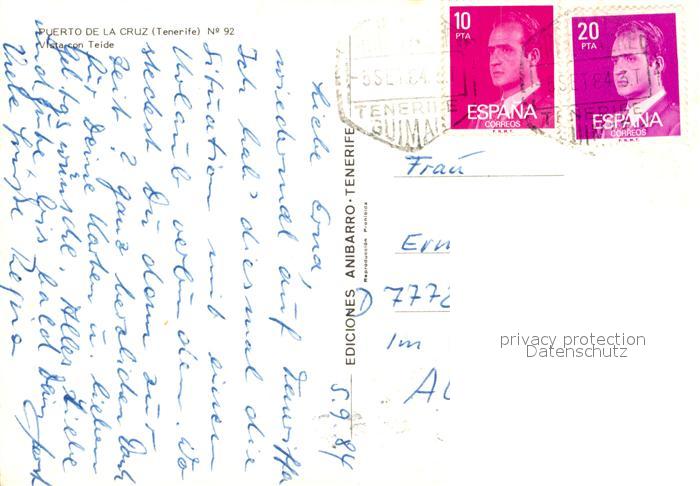 PUERTO DE LA CRUZ (Tenerife) Nº 92
Vista con Teide
5.9.84
Liebe Erna,
wiedermal auf Teneriffa
Ich hab' diesmal die
Situation mit einem
Urlaub verbunden. Wo
steckst Du denn zur
Zeit? Ganz herzlichen Dank
für Deine Karten u. lieben
Gebtgswünsche. Alles Liebe
und Gute, bis bald Dein
Viele Grüße Regina
EDICIONES ANIBARRO - TENERIFE
Reproducción Prohibida
10
PTA
ESPAÑA
CORREOS
F.N.M.T.
20
PTA
ESPAÑA
CORREOS
F.N.M.T.
-5 SET 84
TENERIFE
GUIMA
5 SET 84
TENERIFE
Frau
Ern
D 7772
Im
privacy protection
Datenschutz